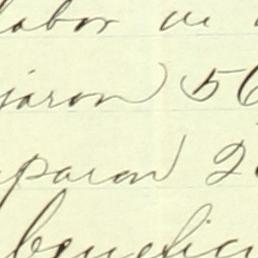 labor
jaron 56
pararon 2
benefici